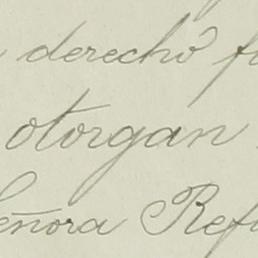 derecho
otorgan
Señora Ref